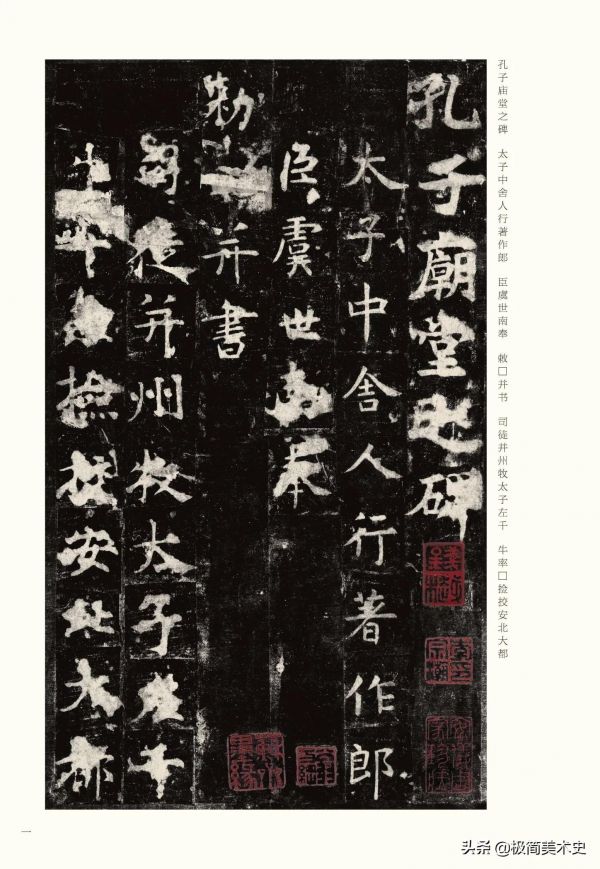 孔子庙堂之碑 太子中舍人行著作郎 臣虞世南奉 敕□并书 司徒并州牧太子左千 牛率□捡挍安北大都
孔子廟堂之碑
太子中舍人行著作郎
臣虞世南奉
勑并書
司徒并州牧太子左千
牛率捡挍安北大都
一
头条 @极简美术史